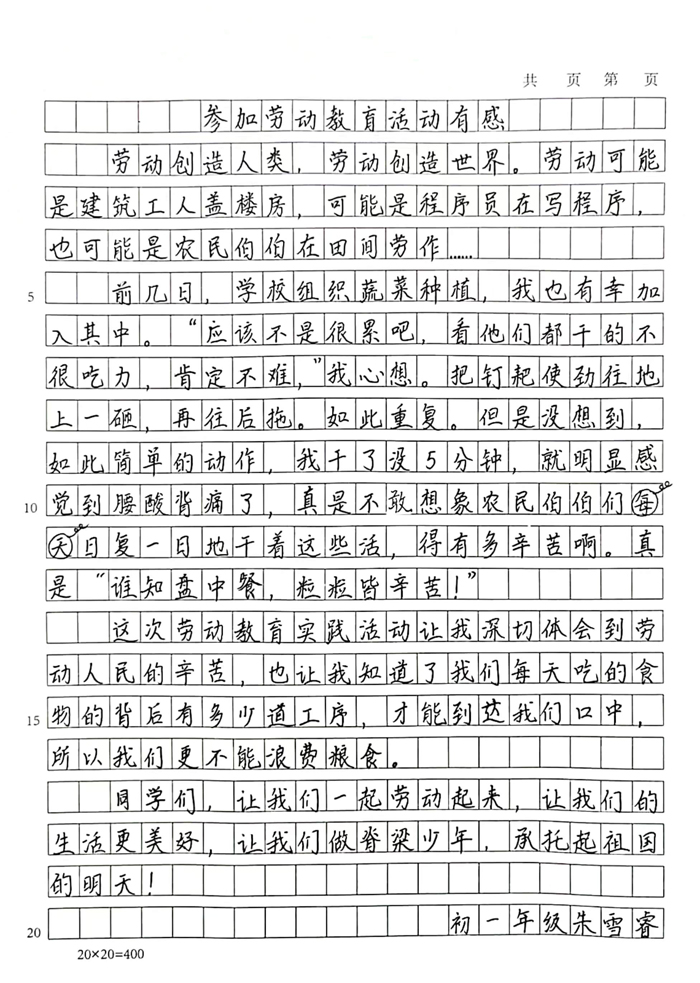 共 页 第 页
参加劳动教育活动有感
劳动创造人类，劳动创造世界。劳动可能
是建筑工人盖楼房，可能是程序员在写程序，
也可能是农民伯伯在田间劳作……
5 前几日，学校组织蔬菜种植，我也有幸加
入其中。“应该不是很累吧，看他们都干的不
很吃力，肯定不难，”我心想。把钉耙使劲往地
上一砸，再往后拖。如此重复。但是没想到，
如此简单的动作，我干了没5分钟，就明显感
10 觉到腰酸背痛了，真是不敢想象农民伯伯们每
天日复一日地干着这些活，得有多辛苦啊。真
是“谁知盘中餐，粒粒皆辛苦！”
这次劳动教育实践活动让我深切体会到劳
动人民的辛苦，也让我知道了我们每天吃的食
15 物的背后有多少道工序，才能到达我们口中，
所以我们更不能浪费粮食。
同学们，让我们一起劳动起来，让我们的
生活更美好，让我们做脊梁少年，承托起祖国
的明天！
20 初一年级朱雪睿
20×20=400